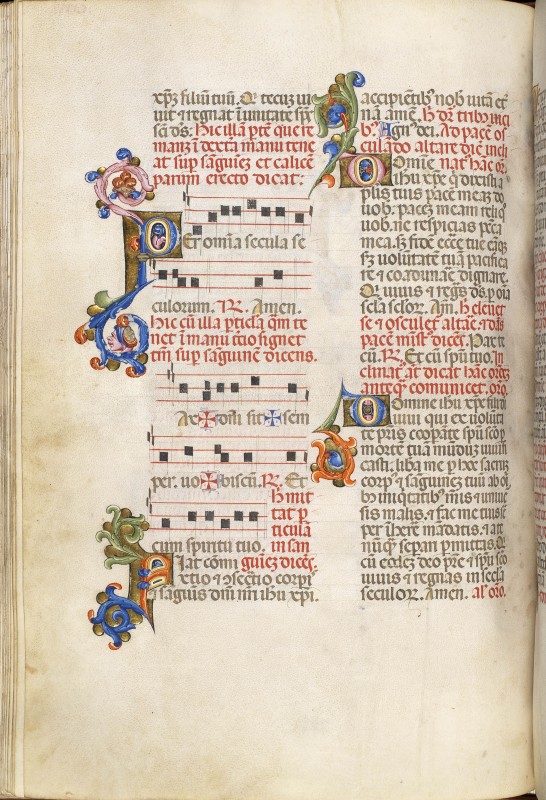 xp̄z filium tuū. Qi tecuz ui
uit ⁊ regnat ī unitate spc̄
sc̄i ds̄. Hic illā pte que re
manz ī dextra manu tene
at sup sanguiez et calicē
parum erecto dicat:
Per omīa secula se
culorum. R. Amen.
Hic cū illa pticla qm te
net ī manu ttio signet
tm̄ sup sanguinē dicens.
Pax ✠ dom̄i sit ✠ sem
per. uo ✠ biscū. R. Et
cum spiritu tuo.
hic mit
tat p
ticula
in san
guiez dicēs.
fiat cōmi
xtio ⁊ ↄsecc̄io corpr̄
⁊ saguis dn̄i nr̄i ihu xp̄i.
accipientib nob uitā et̄
nā amē. Hic dr̄ tribus uici
b. Agn dei. Ad pacē os
culādo altare dicē incli
nat hāc or̄.
Domīe
ihu xp̄e q dixisti a
plis tuis pacē meaz do
uob. pacez meam relīq
uob. ne respicias pctā
mea. sz fidē ecctē tue eāq
sz volūtatē tuā pacifica
re ⁊ coadunare dignare.
Qui uiuis ⁊ regis ds̄. p oīa
scla sclor. Am̄. Hic eleuet
se ⁊ osculet altare. ⁊ dās
pacē mistr̄ dicēs. Pax te
cū. R. Et cū spū tuo. In
clinat at dicat hāc orēz
anteq comunicet. oro.
Domine ihu xp̄e filī dī
uiui qui ex uolūta
te pris coopante spū sco p
mortē tuā mūdūz uiuifi
casti. liba me p hoc sacrūz
corp ⁊ saguinez tuū ab oīb
iniqtatib meis ⁊ uniue
sis malis. ⁊ fac me tuis se
per īherē mādatis. ⁊ a te
nūq separi pmittas. Qi
cū eodez deo pre ⁊ spū sco
uiuis ⁊ regnas in scla
seculor. Amen. al' oro.